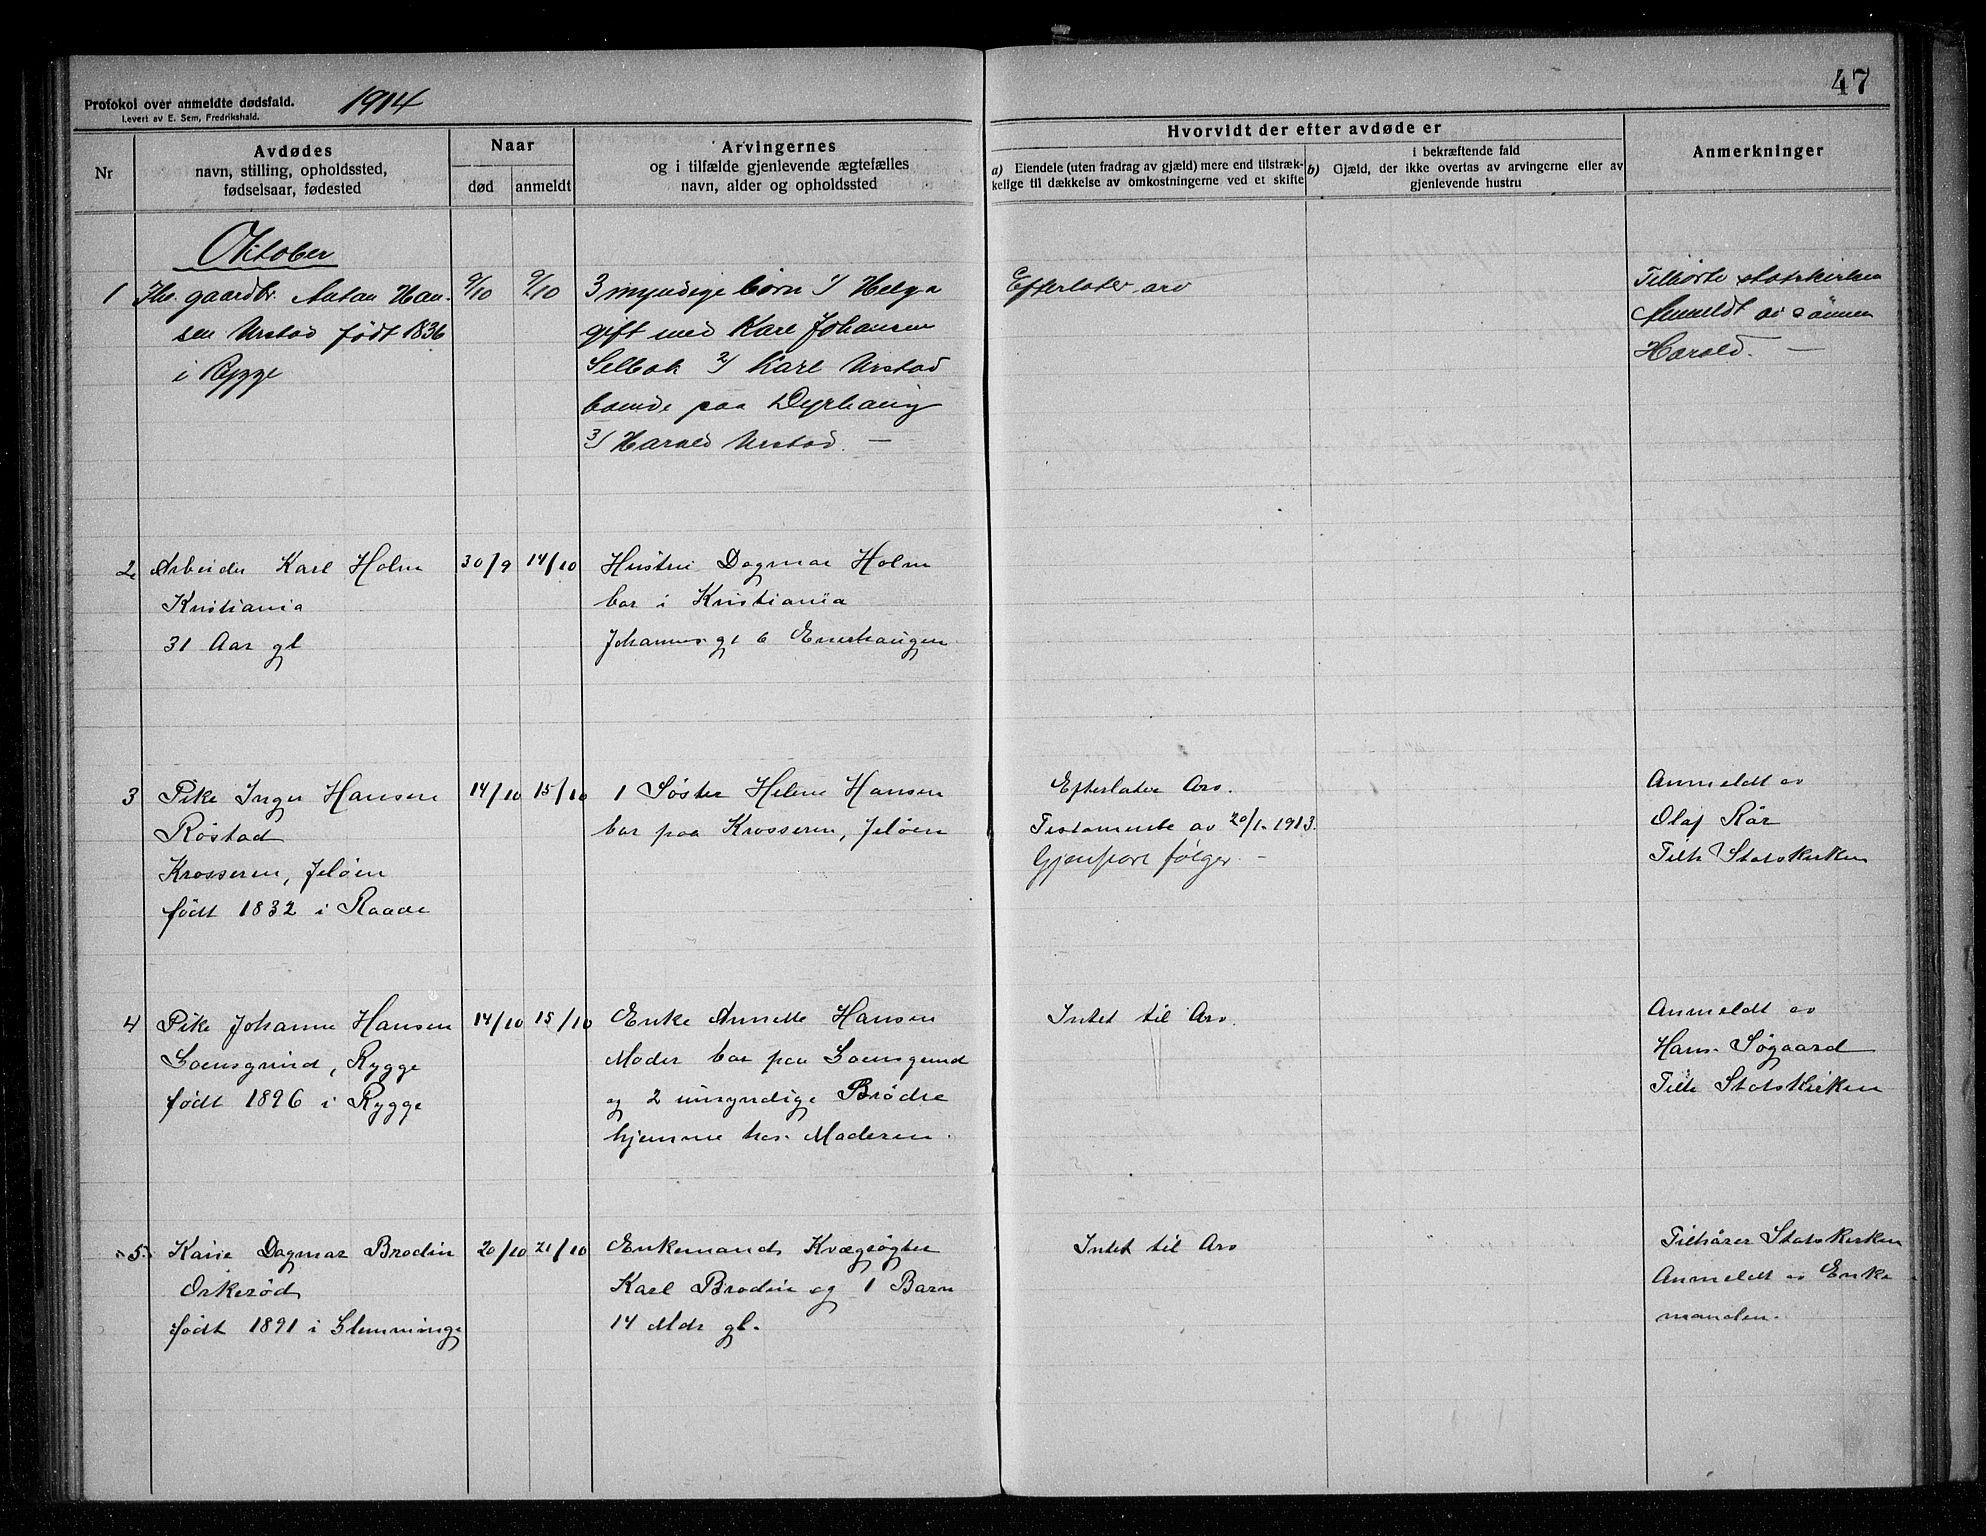 Protokol over anmeldte dødsfald. 1914
Levert av E. Sem, Fredrikshald.
47
Nr
Avdødes
navn, stilling, opholdssted,
fødselsaar, fødested
Naar
død
anmeldt
Arvingernes
og i tilfælde gjenlevende ægtefælles
navn, alder og opholdssted
Hvorvidt der efter avdøde er
a) Eiendele (uten fradrag av gjæld) mere end tilstræk-
kelige til dækkelse av omkostningerne ved et skifte
i bekræftende fald
b) Gjæld, der ikke overtas av arvingerne eller av
gjenlevende hustru
Anmerkninger
Oktober
1
gaardbr. Anton Han-
sen Urstad født 1836
i Rygge
9/10
9/10
3 myndige børn 1/ Helga
gift med Karl Johansen
Selbak 2/ Karl Urstad
boende paa Dyrhaug
3/ Harald Urstad. —
Efterlater arv
Tilhørte statskirken
Anmeldt av sønnen
Harald. —
2
Arbeider Karl Holm
Kristiania
31 Aar gl
30/9
14/10
Hustru Dagmar Holm
bor i Kristiania
Johannes gt 6 Enerhaugen
3
Pike Inger Hansen
Røstad
Krosseren, Jeløen
født 1832 i Raade
14/10
15/10
1 Søster Helene Hansen
bor paa Krosseren, Jeløen
Efterlater Arv.
Testamente av 20/1-1913.
Gjenpart følger. —
Anmeldt av
Olaf Rør
Tilh Statskirken
4
Pike Johanne Hansen
Loensgrind, Rygge
født 1896 i Rygge
14/10
15/10
Enke Annette Hansen
Moder bor paa Loensgrind
og 2 umyndige Brødre
hjemme hos Moderen.
Intet til Arv.
Anmeldt av
Hans Søgaard
Tilh Statskirken
5
Karie Dagmar Brodin
Orkerød
født 1891 i Glemminge
20/10
21/10
Enkemand Kvægrøgter
Karl Brodin og 1 Barn
14 Mdr gl.
Intet til Arv
Tilhører Statskirken
Anmeldt av Enke
manden.